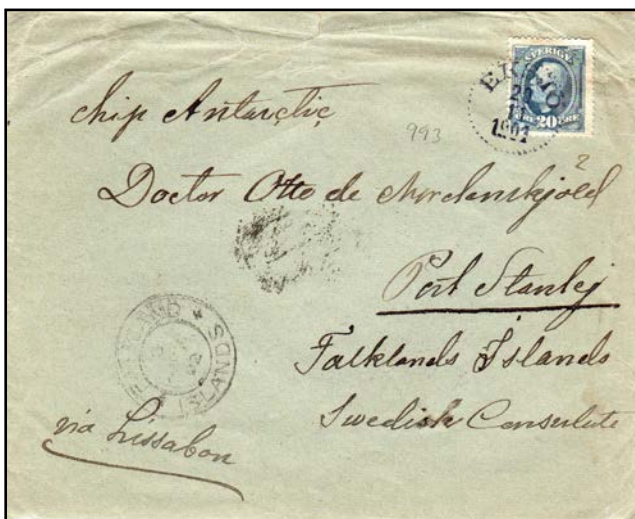 SVERIGE
EKSJÖ
1901
20 ÖRE
Ship Antarctic
993
?
Doctor Otto de Nordenskjöld
Port Stanley
Falklands Islands
Swedish Consulate
FALKLAND ISLANDS
via Lissabon